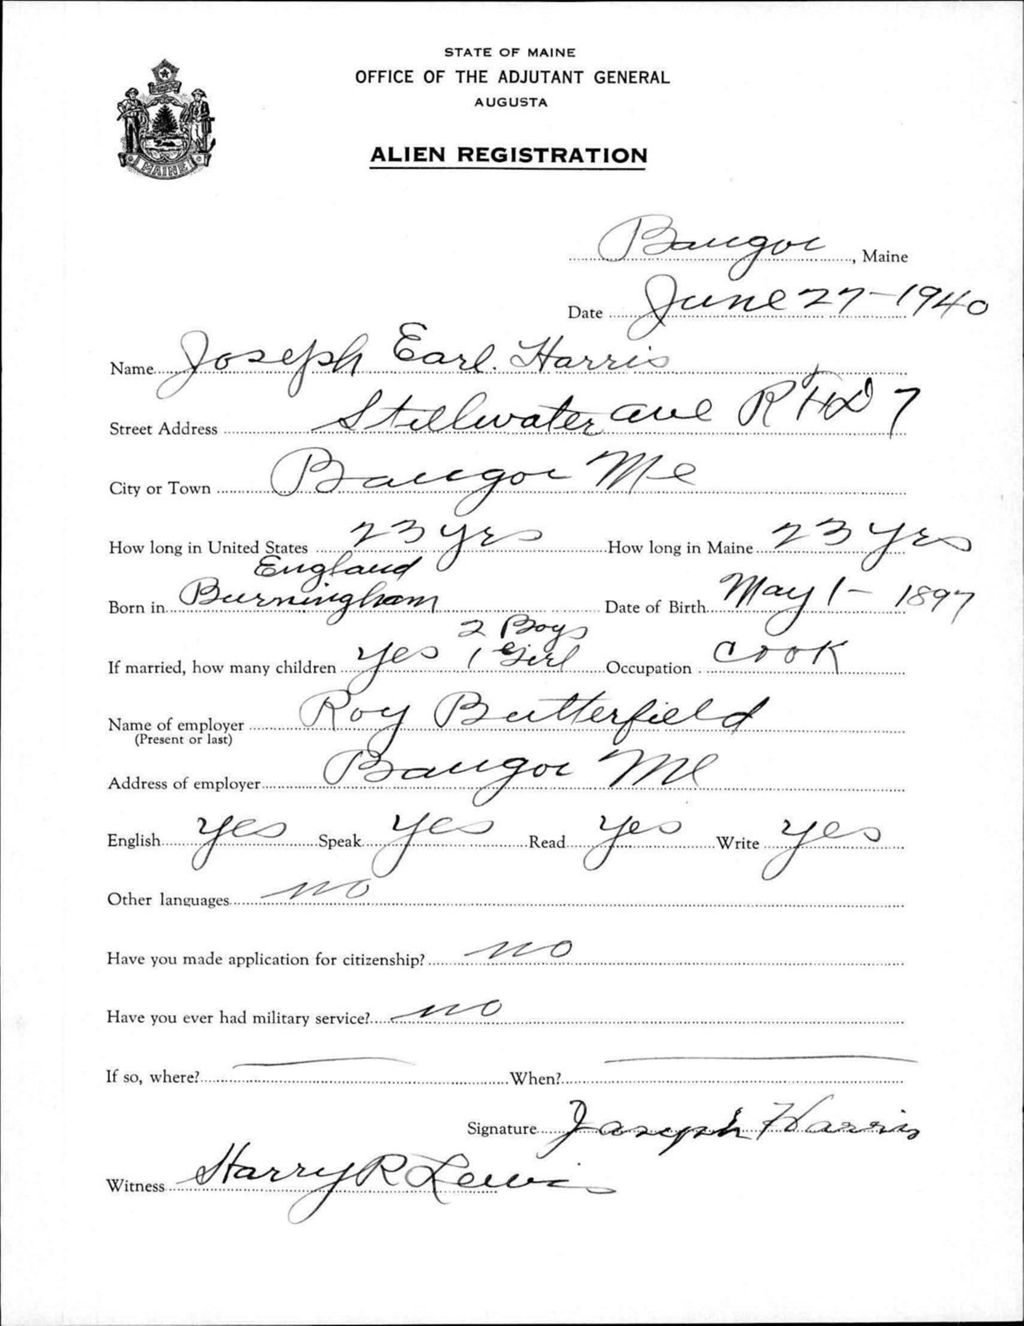 STATE OF MAINE
OFFICE OF THE ADJUTANT GENERAL
AUGUSTA
ALIEN REGISTRATION
MAINE
Bangor, Maine
Date June 27-1940
Name Joseph Earl. Harris
Street Address Stillwater ave RFD 7
City or Town Bangor Me
How long in United States 23 yrs How long in Maine 23 yrs
England
Born in Burningham Date of Birth May 1- 1897
2 Boys
If married, how many children yes 1 Girl Occupation Cook
Name of employer Roy Butterfield
(Present or last)
Address of employer Bangor Me
English yes Speak yes Read yes Write yes
Other languages no
Have you made application for citizenship? no
Have you ever had military service? no
If so, where? When?
Signature Joseph E Harris
Witness Harry R Lewis